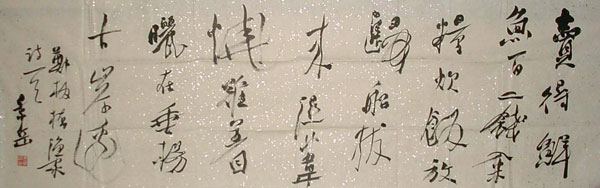 賣得鮮
魚百二錢籴
糧炊飯放
歸船拔
来濕葦
燒難着
曬在垂楊
古岸邊
鄭板橋漁家
诗一首